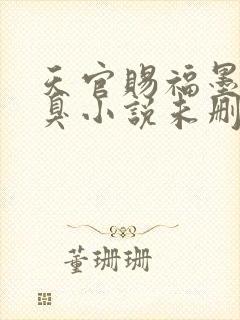 天官赐福墨
臭小说未删
董珊珊